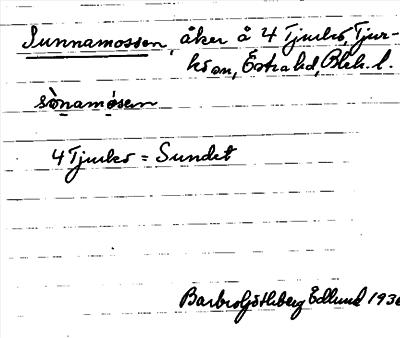 Sunnamossen, åker å 4 Tjurkö, Tjur-
kö sn, Östra hd, Blek. l.
sònamósen
4 Tjurkö = Sundet
Barbro Edlund 193